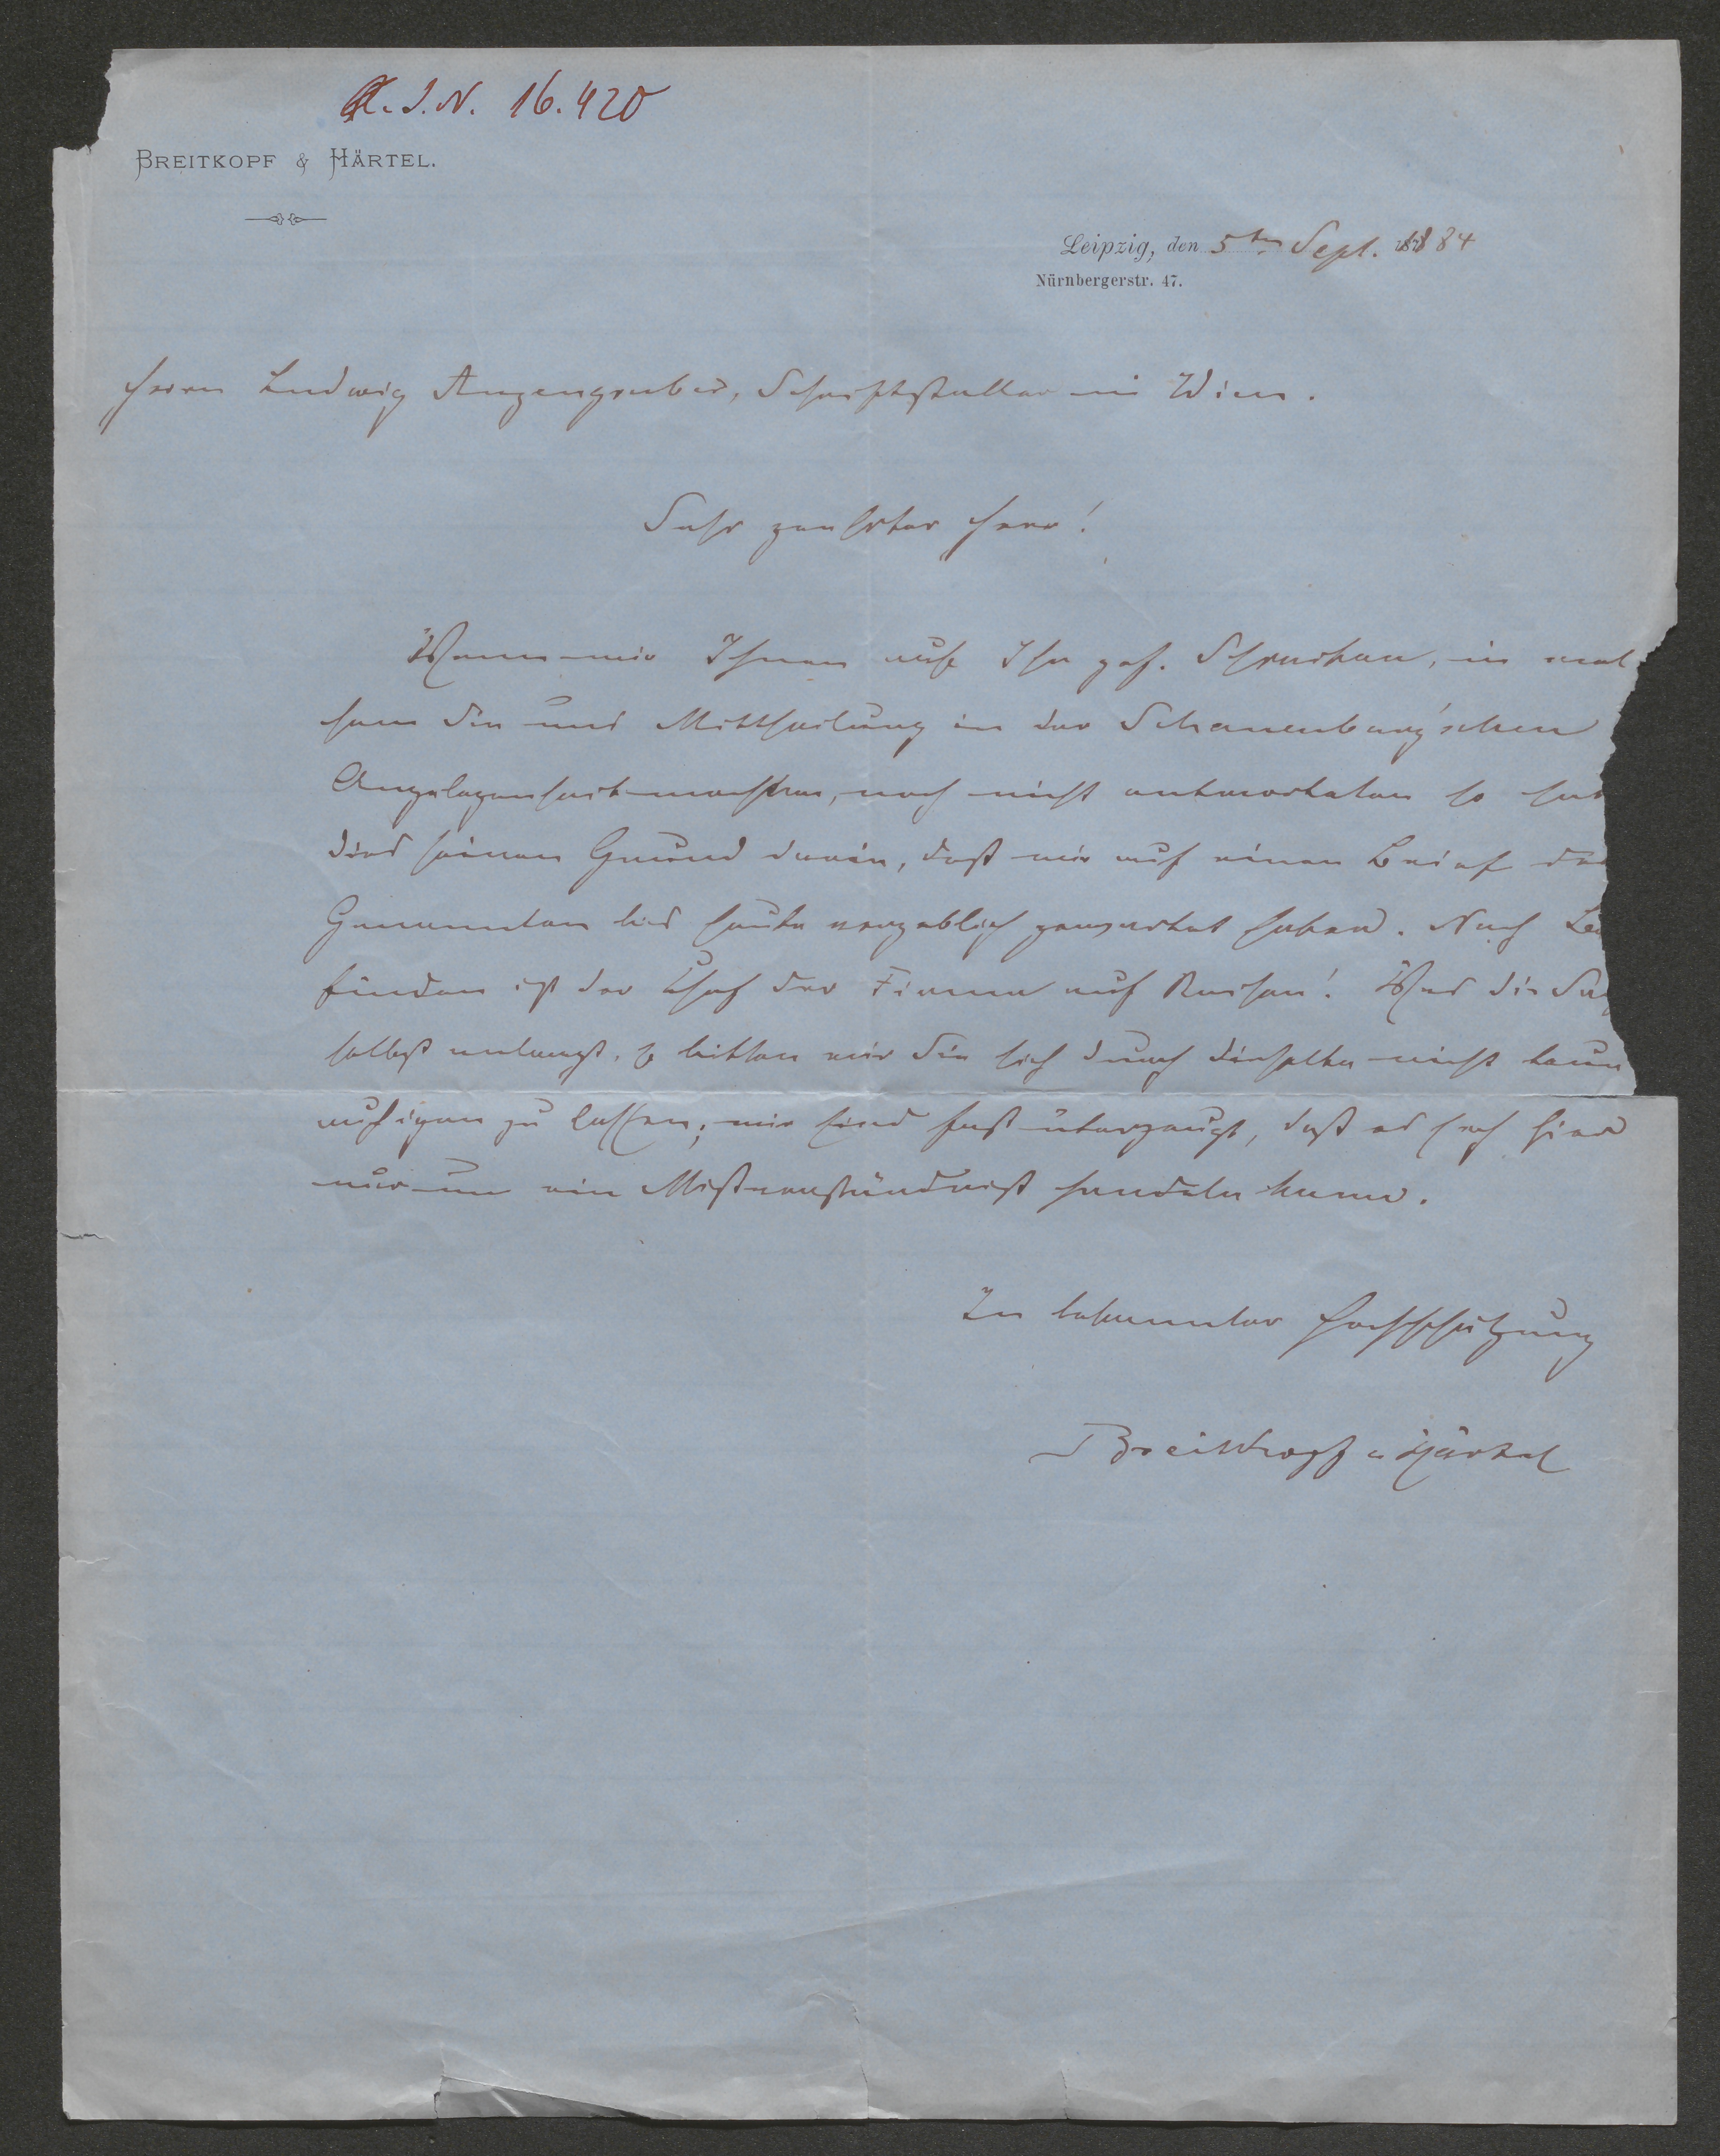 I.N. 16.420
BREITKOPF & HÄRTEL.
Leipzig, den 5ten Sept. 1884
Nürnbergerstr. 47.
Herrn Ludwig Anzengruber, Schriftsteller in Wien.
Sehr geehrter Herr!
Wenn wir Ihnen auf Ihr gef. Schreiben, in wel
chem Sie uns Mittheilung in der Schauenburg'schen
Angelegenheit machten, noch nicht antworteten so hat
dies seinen Grund darin, daß wir auf einen Brief des
Genannten bis heute vergeblich gewartet haben. Nach
ist der Chef der Firma auf Reisen! Was die Sac
selbst anlangt, so bitten wir Sie sich durch dieselbe nicht beun
ruhigen zu lassen; wir sind fest überzeugt, daß es sich hier
nur um ein Mißverständniß handeln kann.
In bekannter Hochschätzung
Breitkopf u Härtel